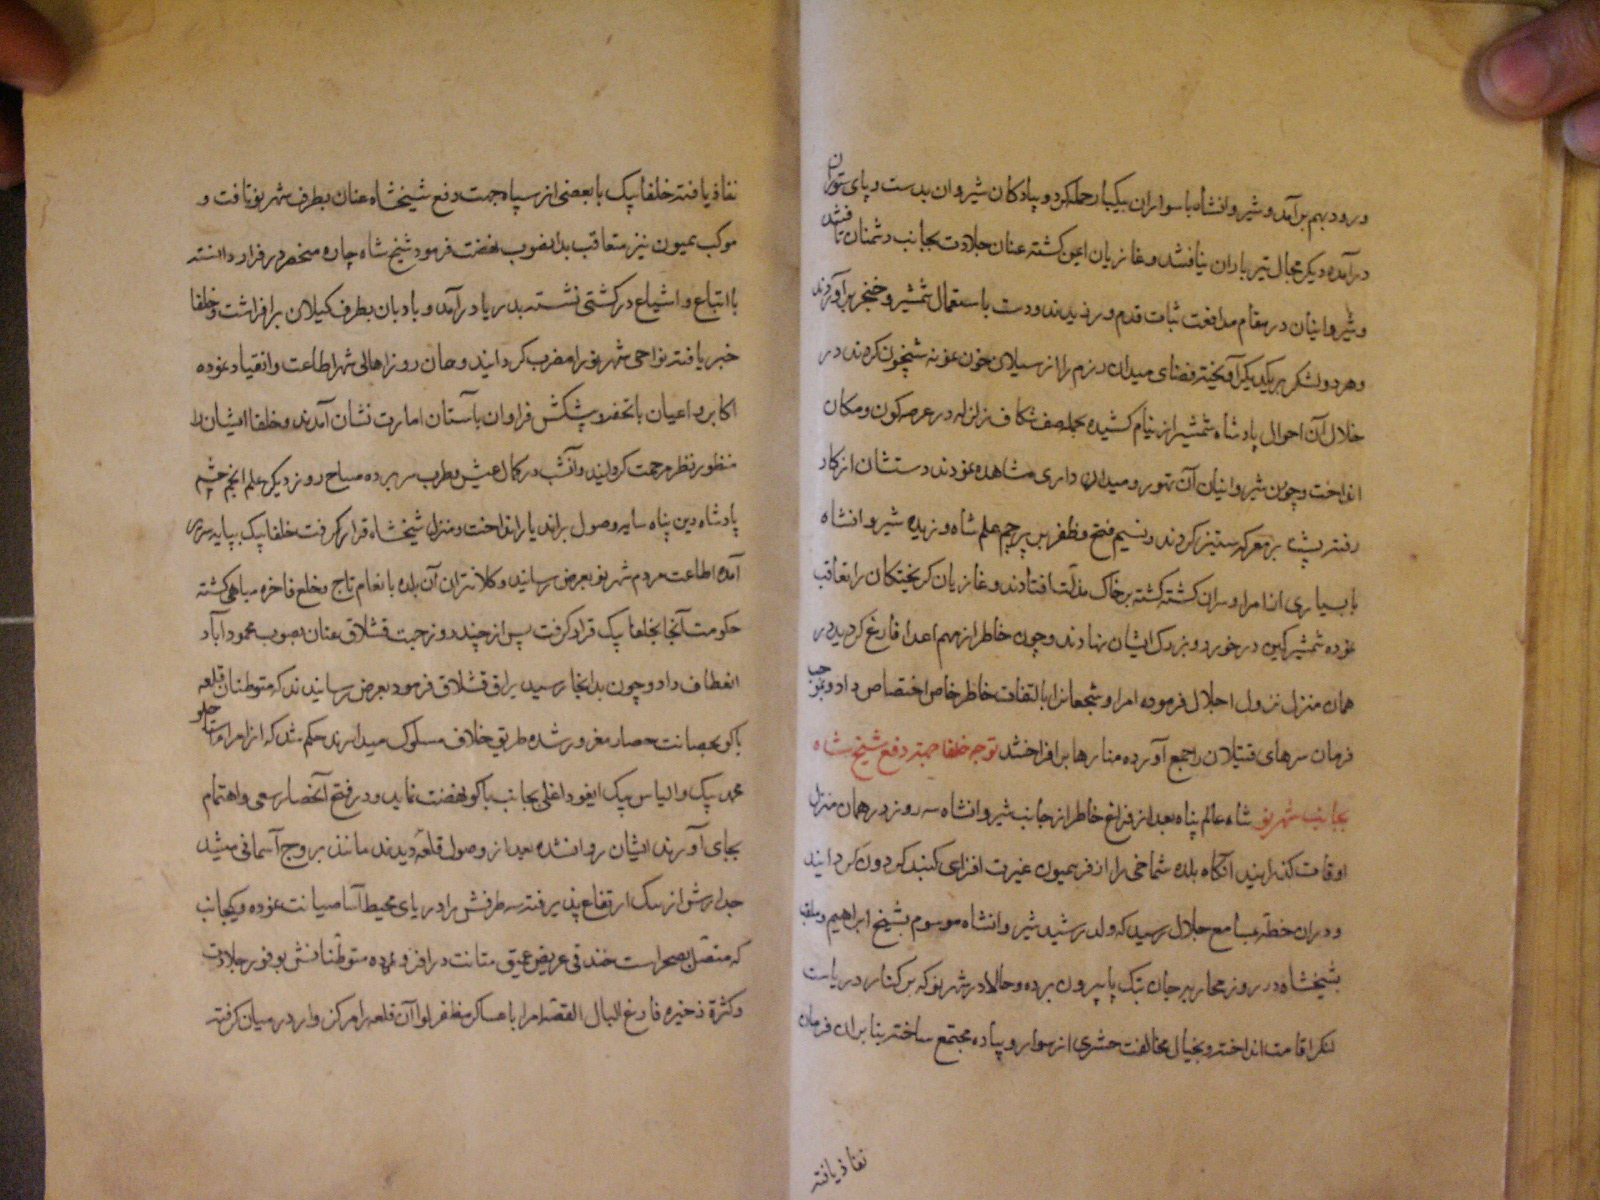 ورود بهم برآمد و شیروانشاه با سواران بیکبار حمله کرد و پیادکان شیروان بدست و پای ستوران
درآمده دیکر مجال تیر باران نیافتند و غازیان ایمن کشته عنان جلادت بجانب دشمنان تافتند
و شیروانیان در مقام مدافعت ثبات قدم ورزیدند و دست باستعمال شمشیر و خنجر برآوردند
و هر دو لشکر بریکدیکر آمیخته فضای میدان رزم را از سیلان خون نمونه شیخون کردند در
خلال آن احوال پادشاه شمشیر از نیام کشیده بحمله صف شکاف زلزله در عرصه کون و مکان
انداخت و چون شیروانیان آن تهور و میدان داری مشاهده نمودند دستشان از کار
رفته پشت بر معرکه ستیز کردند و نسیم فتح و ظفر بر پرچم علم شاه وزیده شیروانشاه
با بسیاری از امرا و سران کشته کشته بر خاک مذلت افتادند و غازیان کریختکان را تعاقب
نموده شمشیر کین در خورد و بزرک ایشان نهادند و چون خاطر از مهم اعدا فارغ کردید در
همان منزل نزول اجلال فرموده امرا و شجعانرا بالتفات خاطر خاص اختصاص داد و بموجب
فرمان سرهای قتیلان را جمع آورده منارها برافراختند توجه خلفا جهته دفع شیخ شاه
بجانب شهر نو شاه عالم پناه بعد از فراغ خاطر از جانب شیروانشاه سه روز در همان منزل
اوقات کذرانید آنکاه بلده شماخی را از فر همیون غیرت افزای کنبد کردون کردانید
و دران خطه بمسامع جلال رسید که ولد رشید شیروانشاه موسوم بشیخ ابراهیم و ملقب
بشیخشاه در روز محاربه جان بتک پا بیرون برده و حالا در شهر نو که بر کنار دریاست
لنکر اقامت انداخته و بخیال مخالفت حشری از سوار و پیاده مجتمع ساخته بنا بران فرمان
نفاذ یافته
نفاذ یافته خلفا بیک با بعضی از سپاه جهت دفع شیخشاه عنان بطرف شهر نو تافت و
موکب همیون نیز متعاقب بدانصوب نهضت فرمود شیخ شاه چاره منحصر در فرار دانسته
با اتباع و اشیاع در کشتی نشسته بدریا درآمد و بادبان بطرف کیلان برافراشت و خلفا
خبر یافته نواحی شهر نو را مضرب کردانید و همان روز اهالی شهر اطاعت و انقیاد نموده
اکابر و اعیان با تحفه و پیشکش فراوان بآستان امارت نشان آمدند و خلفا ایشان را
منظور نظر مرحمت کردانید و آنشب در کمال عیش و طرب سر برده صباح روز دیکر علم انجم حشم
پادشاه دین پناه سایه وصول بران دیار انداخت و منزل شیخشاه قرار کرفت خلفا بیک بپایه سریر
آمده اطاعت مردم شهر نو بعرض رسانید و کلانتران آن بلده بانعام تاج و خلع فاخره مباهی کشته
حکومت آنجا بخلفا بیک قرار کرفت پس از چند روز جهت قشلاق عنان بصوب محمودآباد
انعطاف داد و چون بدانجا رسید یراق قشلاق فرمود بعرض رسانیدند که متوطنان قلعه
باکو بحصانت حصار مغرور شده طریق خلاف مسلوک میدارند حکم شد که از امراء خلو
محمد بیک و الیاس بیک ایغود اغلی بجانب باکو نهضت نماید و در فتح آنحصار سعی و اهتمام
بجای آورند ایشان روانشده بعد از وصول قلعه دیدند مانند بروج آسمانی مشید
جدارش از سنک ارتفاع پذیرفته سه طرفش را دریای محیط آسا صیانت نموده و یکجانب
که متصل بصحراست خندقی عریض عمیق متانت در افزوده متوطنانش بوفور جلادت
و کثرة ذخیره فارغ البال القصه امرا با عساکر مظفر لوا آن قلعه را مرکزوار در میان کرفته